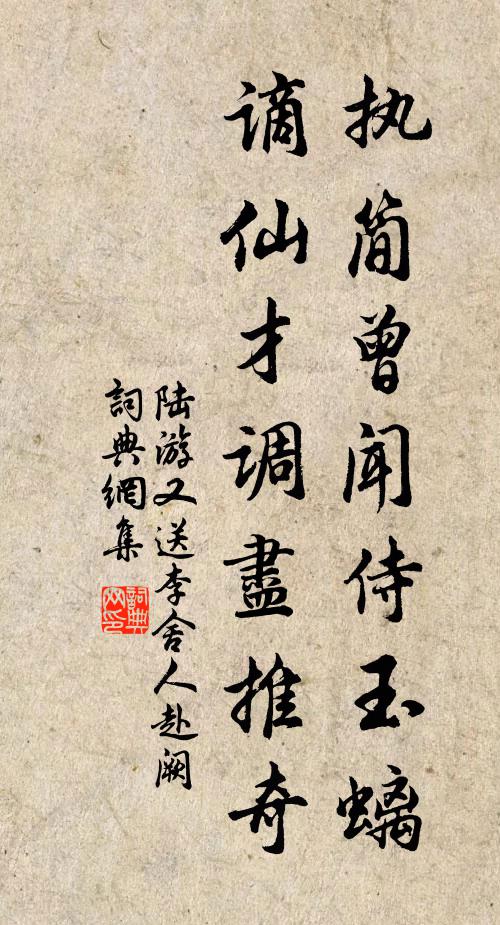 执简曾闻侍玉螭
谪仙才调盡推奇
陆游又送李舍人赴阙
詞典網集
詞典网印